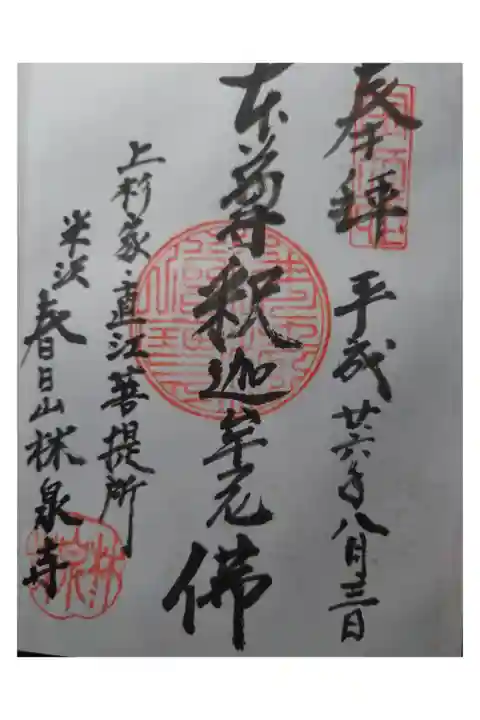 奉拝
平成廿六年八月三日
本尊釈迦牟尼佛
上杉家・直江菩提所
米沢春日山林泉寺